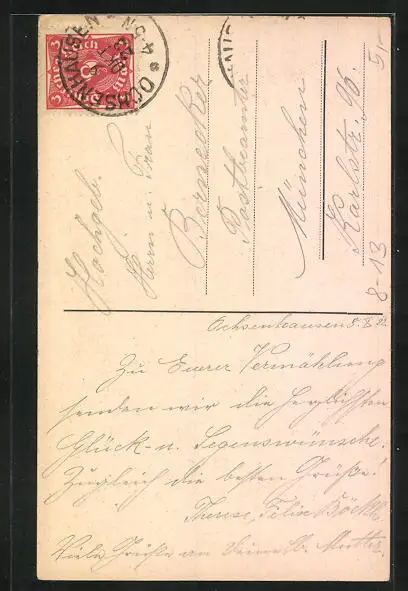 OCHSENHAUSEN
Hochgeb.
Herrn u. Frau
Bernecker
Postbeamter
München
Karlstr. 96.
8-13
5,-
Ochsenhausen 5.8.22
Zu Eurer Vermählung
senden wir die herzlichsten
Glück- u. Segenswünsche.
Zugleich die besten Grüße!
Therese, Felix Böckh
Viele Grüße an Deine lb. Mutter.